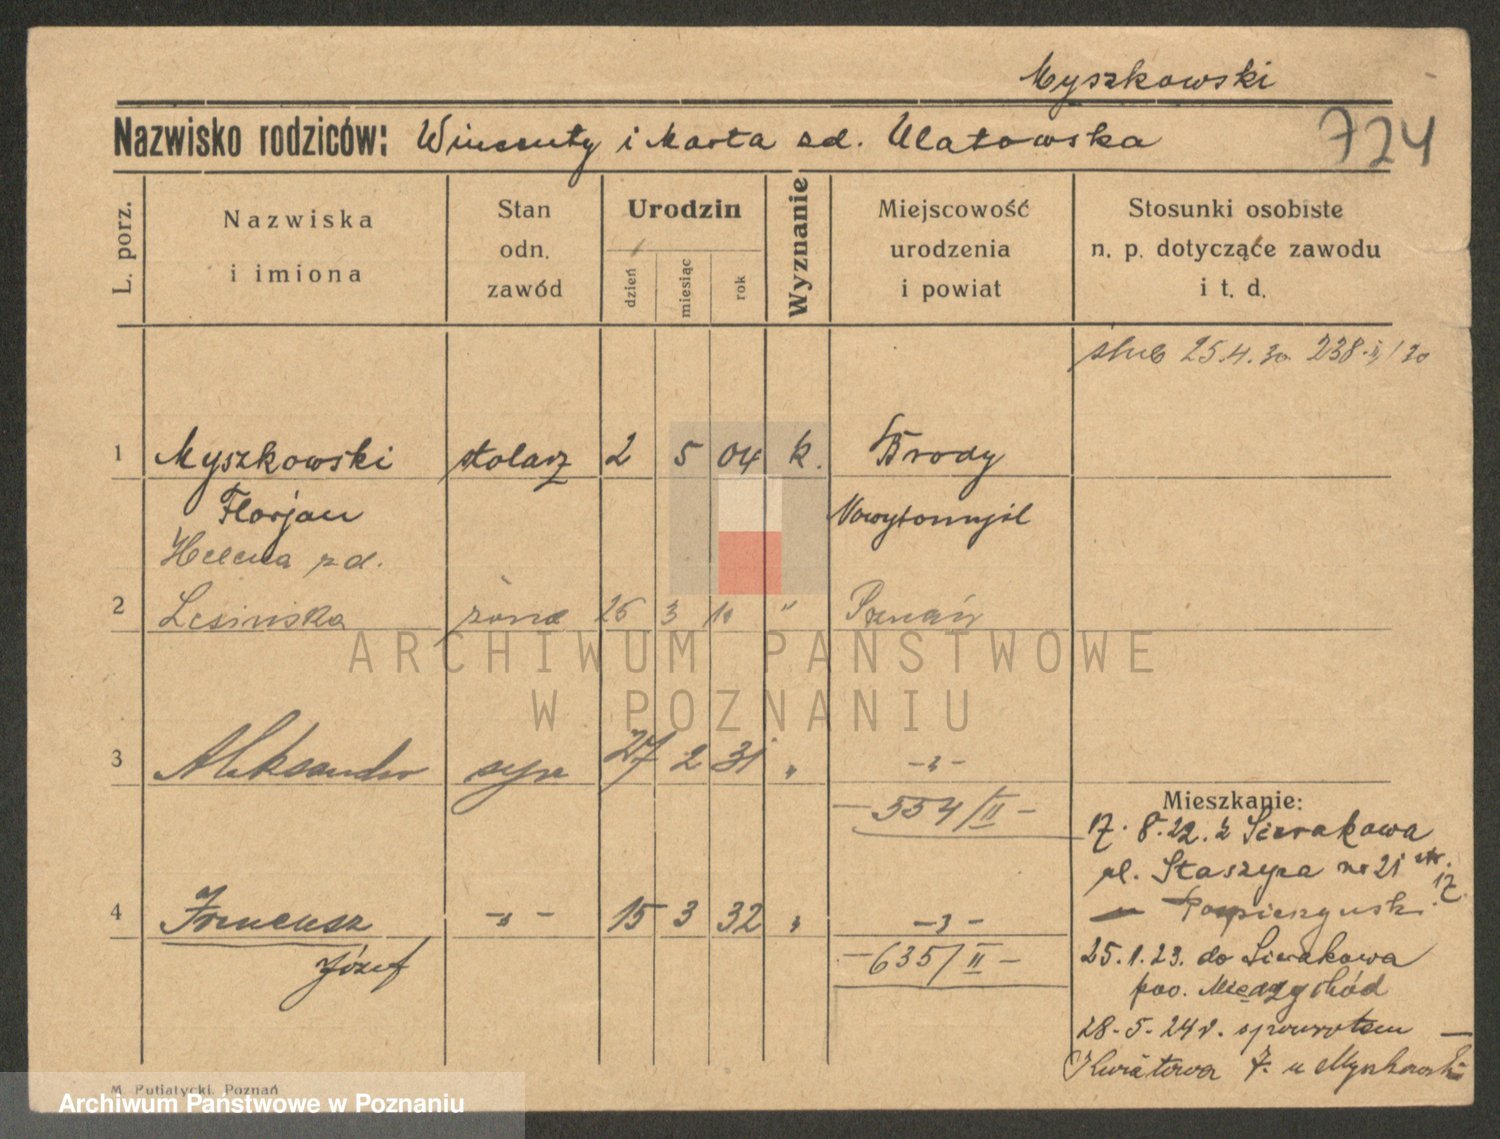 Myszkowski
Nazwisko rodziców: Wincenty i Marta zd. Ulatowska
724
L. porz.
Nazwiska
i imiona
Stan
odn.
zawód
Urodzin
dzień
miesiąc
rok
Wyznanie
Miejscowość
urodzenia
i powiat
Stosunki osobiste
n. p. dotyczące zawodu
i t. d.
ślub 25.4.30 238.II/30
1 Myszkowski stolarz 2 5 04 k. Brody
Florjan Nowytomyśl
Helena zd.
2 Lesińska żona 25 3 10 " Poznań
ARCHIWUM PAŃSTWOWE
W POZNANIU
3 Aleksander syn 27 2 31 " -"-
-554/II-
Mieszkanie:
17.8.22. z Sierakowa
pl. Staszyca nr 21 str.
17
25.1.23. do Sierakowa
pow. Międzychód
28.5.24r. spowrotem —
Kwiatowa 7. u Myszkowski
4 Ireneusz -"- 15 3 32 " -"-
Józef -635/II-
M. Putiatycki, Poznań
Archiwum Państwowe w Poznaniu